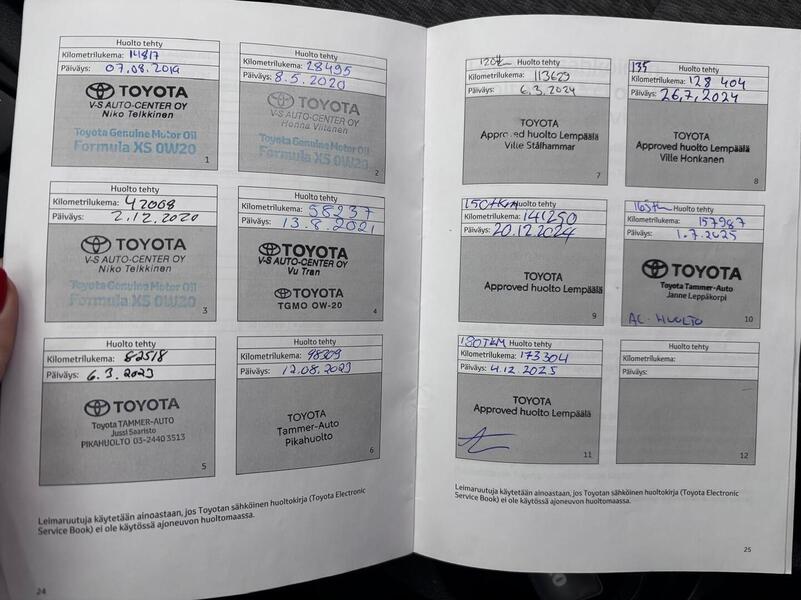 Huolto tehty
Kilometrilukema: 14817
Päiväys: 07.08.2019
TOYOTA
V-S AUTO-CENTER OY
Niko Teikkinen
Toyota Genuine Motor Oil
Formula XS 0W20
1
Huolto tehty
Kilometrilukema: 28495
Päiväys: 8.5.2020
TOYOTA
V-S AUTO-CENTER OY
Hanna Viitanen
Toyota Genuine Motor Oil
Formula XS 0W20
2
Huolto tehty
Kilometrilukema: 42008
Päiväys: 2.12.2020
TOYOTA
V-S AUTO-CENTER OY
Niko Teikkinen
Toyota Genuine Motor Oil
Formula XS 0W20
3
Huolto tehty
Kilometrilukema: 58237
Päiväys: 13.8.2021
TOYOTA
V-S AUTO-CENTER OY
Vu Tran
TOYOTA
TGMO OW-20
4
Huolto tehty
Kilometrilukema: 82518
Päiväys: 6.3.2023
TOYOTA
Toyota TAMMER-AUTO
Jussi Saaristo
PIKAHUOLTO 03-2440 3513
5
Huolto tehty
Kilometrilukema: 98309
Päiväys: 12.08.2023
TOYOTA
Tammer-Auto
Pikahuolto
6
Leimaruutuja käytetään ainoastaan, jos Toyotan sähköinen huoltokirja (Toyota Electronic
Service Book) ei ole käytössä ajoneuvon huoltomaassa.
24
Huolto tehty
Kilometrilukema: 113629
Päiväys: 6.3.2024
TOYOTA
Approved huolto Lempäälä
Ville Stålhammar
7
135 Huolto tehty
Kilometrilukema: 128 404
Päiväys: 26,7,2024
TOYOTA
Approved huolto Lempäälä
Ville Honkanen
8
150TKM Huolto tehty
Kilometrilukema: 141250
Päiväys: 20.12.2024
TOYOTA
Approved huolto Lempäälä
9
Huolto tehty
Kilometrilukema: 157987
Päiväys: 1.7.2025
TOYOTA
Toyota Tammer-Auto
Janne Leppäkorpi
AC-HUOLTO
10
180TKM Huolto tehty
Kilometrilukema: 173304
Päiväys: 4.12.2025
TOYOTA
Approved huolto Lempäälä
11
Huolto tehty
Kilometrilukema:
Päiväys:
12
Leimaruutuja käytetään ainoastaan, jos Toyotan sähköinen huoltokirja (Toyota Electronic
Service Book) ei ole käytössä ajoneuvon huoltomaassa.
25